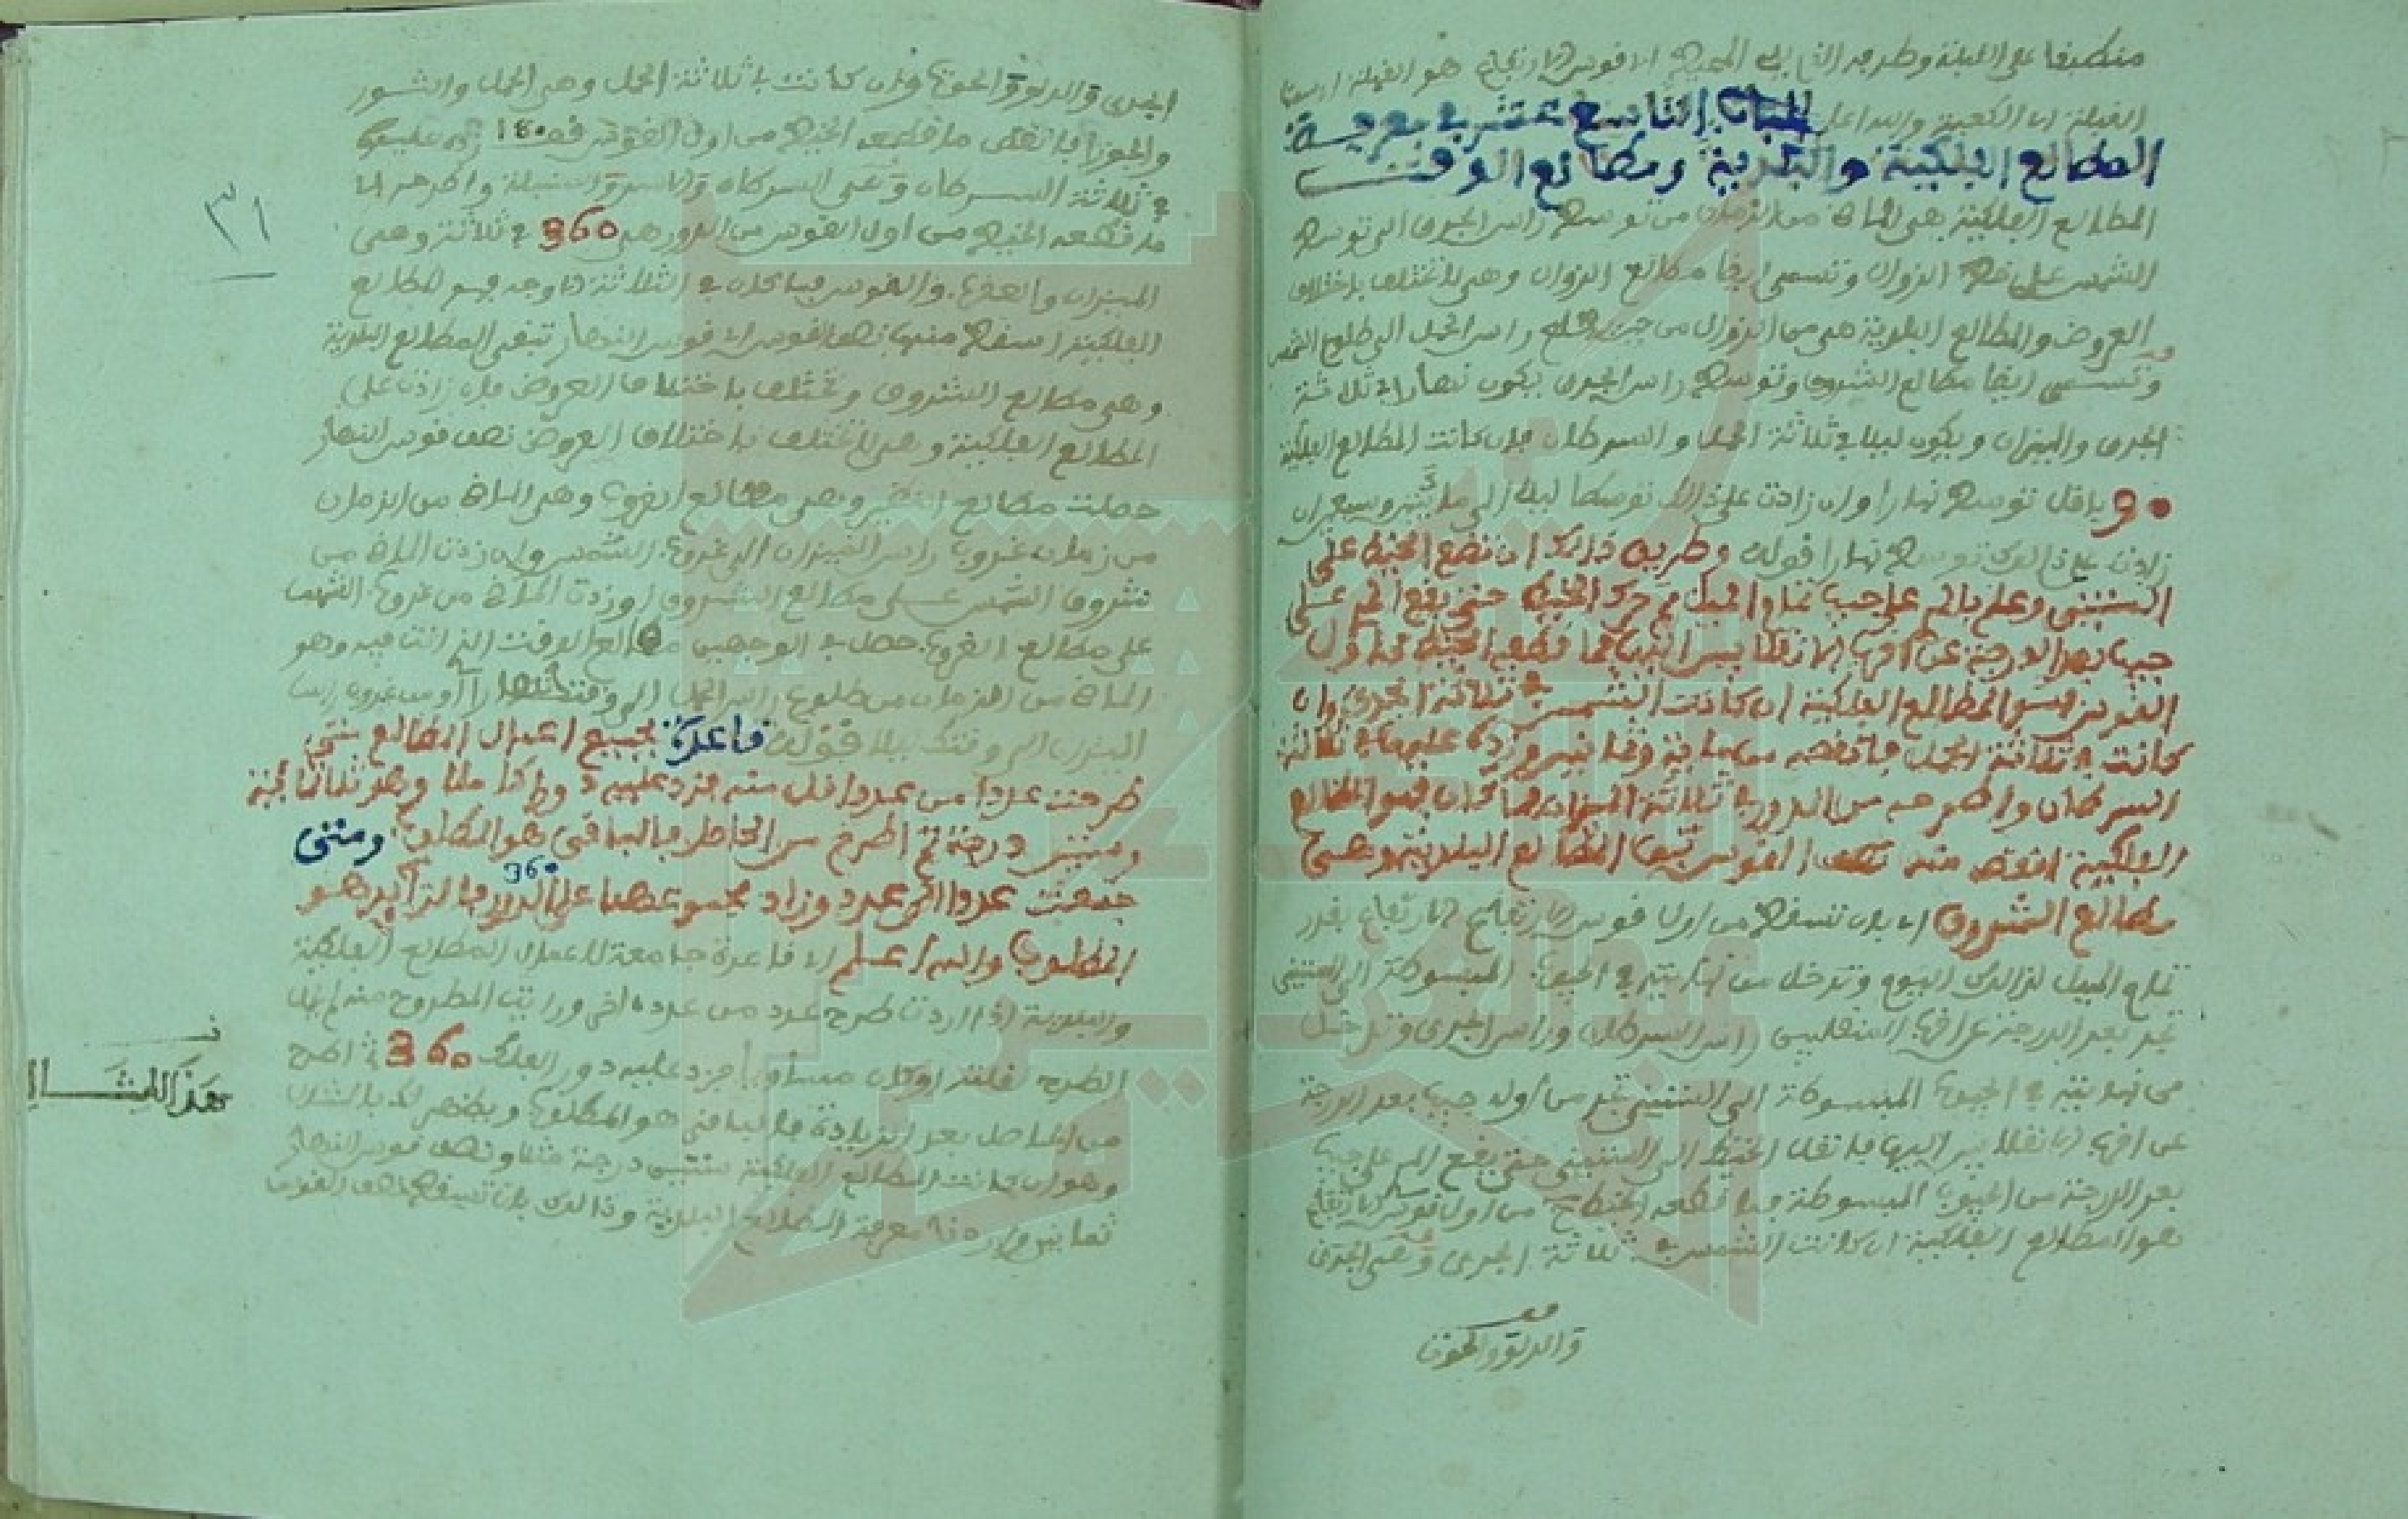 منطبقا على القبلة وطرفه الذي يلي المحيط الا قوس الارتفاع هو القبلة
القبلة ا الكعبة والله اعلم الباب التاسع عشر في معرفة
المطالع الفلكية والبلدية ومطالع الوقت
المطالع الفلكية هي الماضي من الزمان من توسط راس الجدي الى توسط
الشمس على خط الزوال وتسمى ايضا مطالع الزوال وهي لا تختلف باختلاف
العروض والمطالع البلدية هي من الزوال من حين طلوع راس الحمل الى طلوع الشمس
وتسمى ايضا مطالع الشروق وتوسط راس الجدي يكون نهارا في ثلاثة
الجدي والميزان ويكون ليلا في ثلاثة الحمل والسرطان فان كانت المطالع الفلكية
90 فاقل توسط نهارا وان زادت على ذلك توسط ليلا الى مايتين وسبعين فان
زادت على ذلك توسط نهارا قوله وطريق ذلك ان تضع الخيط على
الستيني وعلم بالمر على جيب تمام الميل ثم حرك الخيط حتى يقع المر على
جيب بعد الدرجة عن اقرب الانقلابين اليها فما قطعه الخيط من اول
القوس فهو المطالع الفلكية ان كانت الشمس في ثلاثة الجدي وان
كانت في ثلاثة الحمل فانقصه من ماية وثمانين وزده عليها في ثلاثة
السرطان واطرحه من الدور في ثلاثة الميزان فما كان فهو المطالع
الفلكية انقص منه نصف القوس تبقى المطالع البلدية وهي
مطالع الشروق ا بان تسقط من اول قوس الارتفاع الارتفاع بقدر
تمام الميل لذلك اليوم وتدخل من نهايته في الجيوب المبسوطة الى الستيني
تجد بعد الدرجة عن اقرب المنقلبين راس السرطان وراس الجدي وتدخل
من نهايته في الجيوب المبسوطة الى الستيني تجد من اوله جيب بعد الدرجة
عن اقرب الانقلابين اليها فانقل الخيط الى الستيني حتى يقع المر على جيب
بعد الدرجة من الجيوب المبسوطة فما قطعه الخيط من اول قوس الارتفاع
هو المطالع الفلكية ان كانت الشمس في ثلاثة الجدي وهي الجدي
والدلو والحوت
الجدي والدلو والحوت وان كانت في ثلاثة الحمل وهي الحمل والثور
والجوزا فانقص ما قطعه الخيط من اول القوس من 180 زده عليها
في ثلاثة السرطان وهي السرطان والاسد والسنبلة واطرحه ا
ما قطعه الخيط من اول القوس من الدور هو 360 في ثلاثة وهي
الميزان والعقرب والقوس فما كان في الثلاثة فاوجد فهو المطالع
الفلكية اسقط منها نصف القوس ا قوس النهار تبقى المطالع البلدية
وهي مطالع الشروق وتختلف باختلاف العروض فان زادت على
المطالع الفلكية وهي لا تختلف باختلاف العروض نصف قوس النهار
حصلت مطالع النظير وهي مطالع الغروب وهي الماضي من الزمان
من زمان غروب راس الميزان الى غروب الشمس وان زدت الماضي من
شروق الشمس على مطالع الشروق او زدت الماضي من غروب الشمس
على مطالع الغروب حصل في الوجهين مطالع الوقت الذي انت فيه وهو
الماضي من الزمان من طلوع راس الحمل الى وقتك نهارا او من غروب راس
الميزان الى وقتك ليلا قوله قاعدة بجميع اعمال المطالع متى
طرحت عددا من عدد اقل منه فزد عليه دورا كاملا وهو ثلاثماية
وستين درجة ثم اطرح من الحاصل فالباقي هو المطلوب ومتى
جمعت عددا الى عدد وزاد مجموعهما على الدور 360 فالزايد هو
المطلوب والله اعلم ا قاعدة جامعة لاعمال المطالع الفلكية
والبلدية اذا اردت طرح عدد من عدد اخر ورايت المطروح منه
الطرح لقلته او كان مساويا فزد عليه دور الفلك 360 ثم اطرح
من الحاصل بعد الزيادة فالباقي هو المطلوب ويظهر لك بالمثال
وهو ان كانت المطالع الفلكية ستين درجة مثلا ونصف قوس النهار
ثمانين واردنا معرفة المطالع البلدية وذلك بان تسقط نصف القوس
٣١
هذا المثال